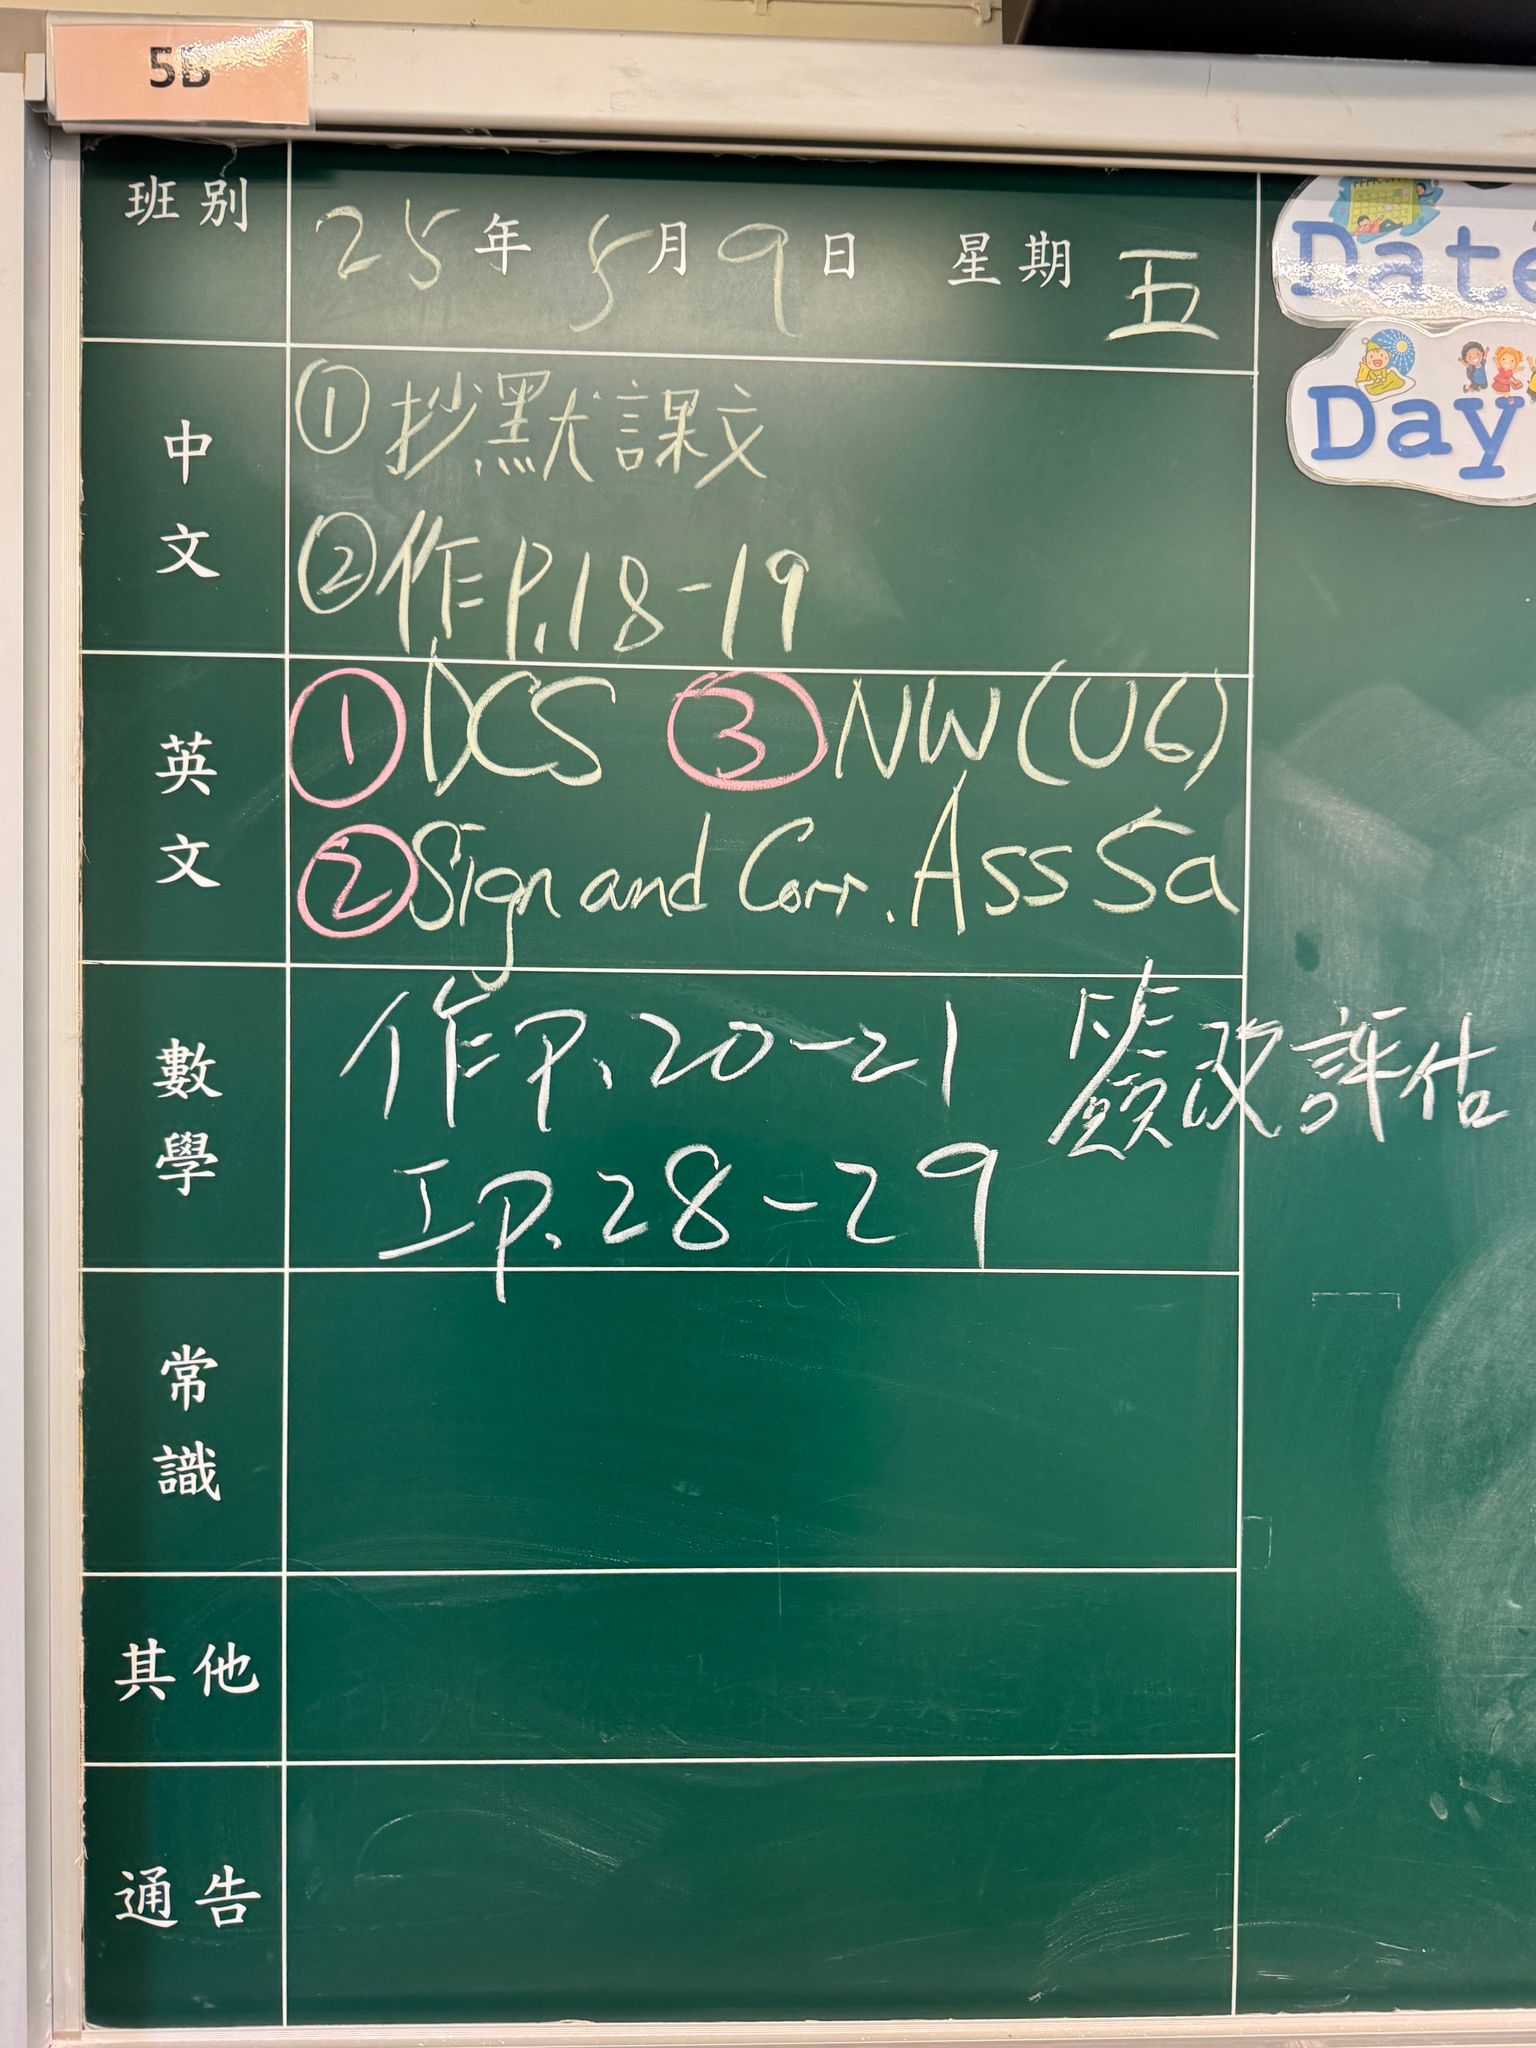 5B
班別
25年5月9日 星期五
Date
Day
中文
①抄默課文
②作P.18-19
英文
①DCS ③NW(U6)
②Sign and Corr. Ass 5a
數學
作P.20-21 簽改評估
工P.28-29
常識
其他
通告